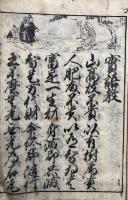 實語教
山高故不貴以有樹為貴
人肥故不貴以有智為貴
富是一生財身滅即共滅
智是万代財命終即随行
玉不磨無光無光為石瓦